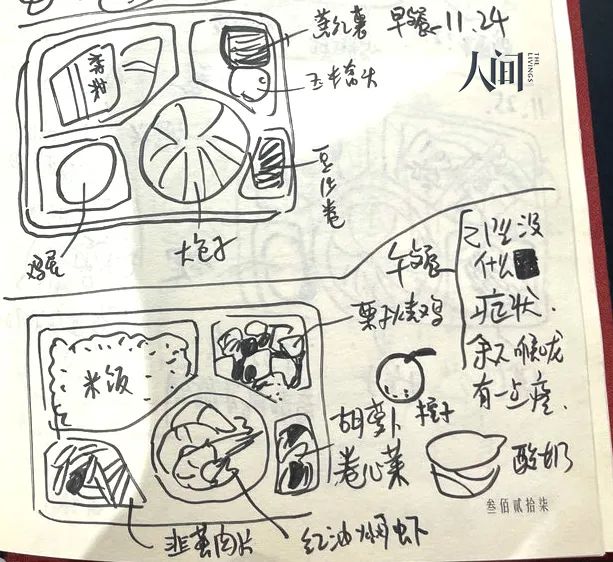 蒸红薯
早餐 11.24
人间
THE LIVINGS
香米
玉米窝头
豆沙卷
鸡蛋
大包子
午餐
已经没
什么
症状.
余又喉咙
有一点痒.
栗子烧鸡
米饭
橙子
胡萝卜
卷心菜
酸奶
韭黄肉片
红油焖虾
叁佰贰拾柒